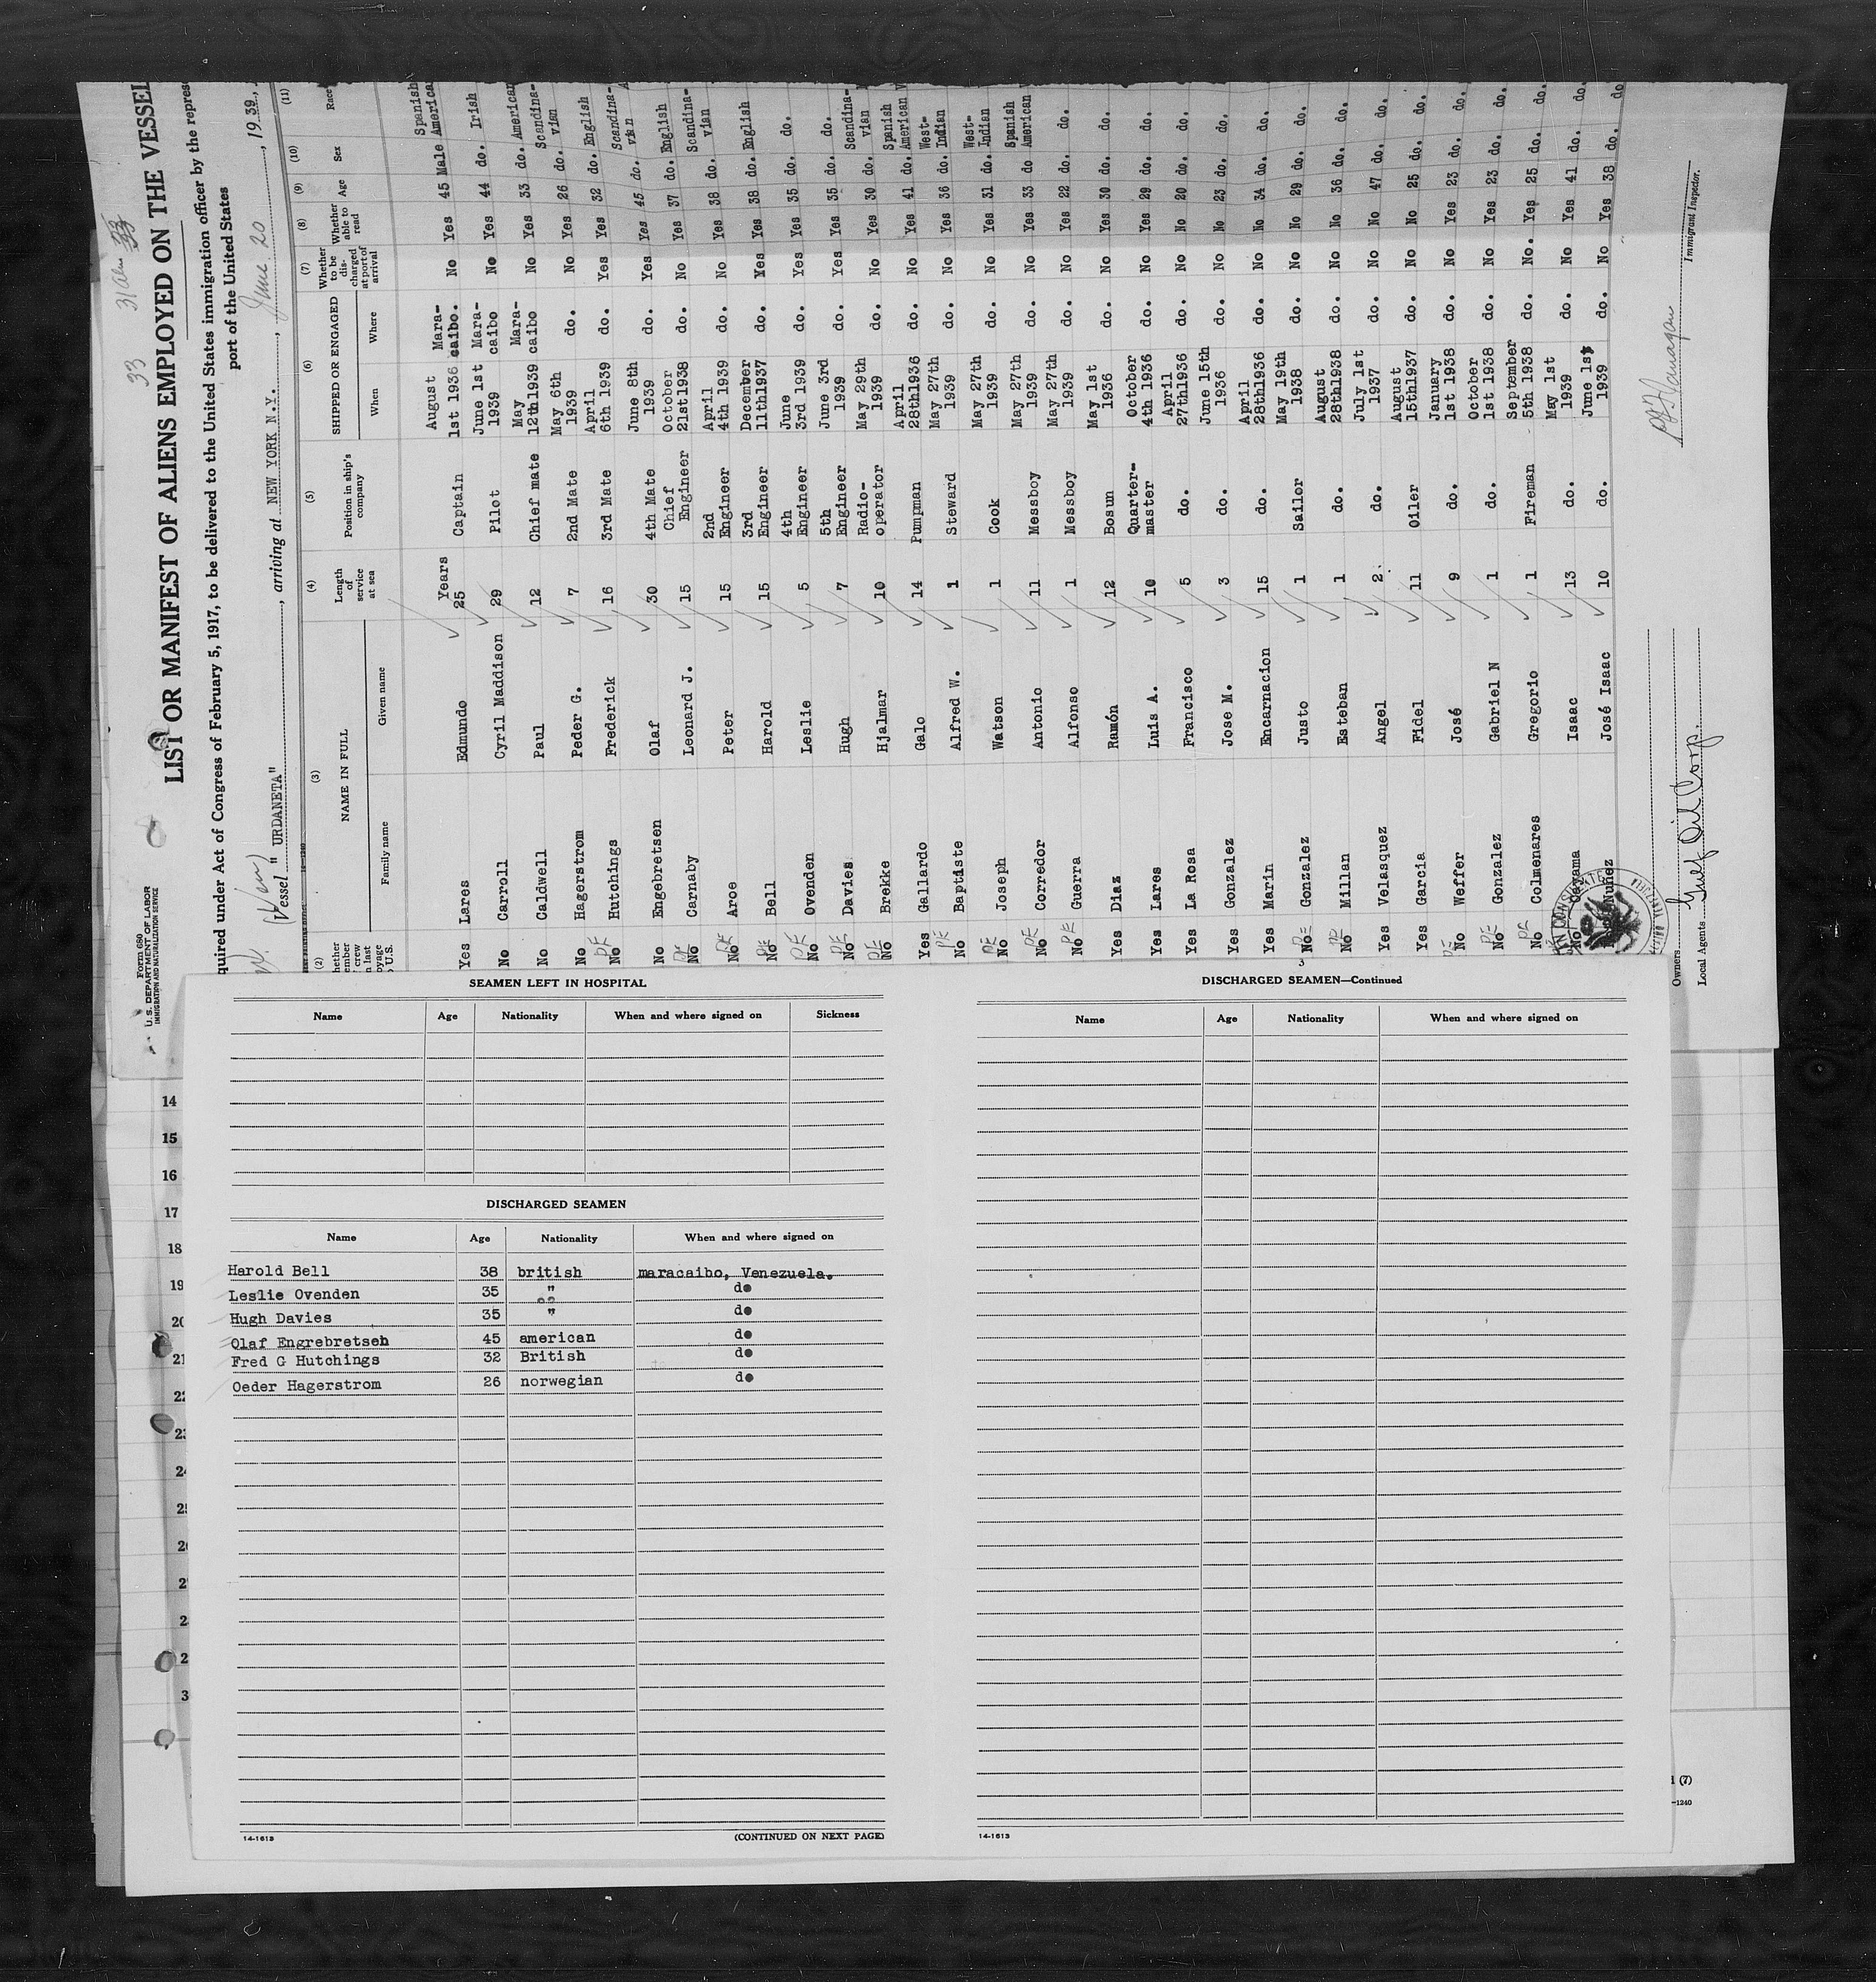 Form 680
U. S. DEPARTMENT OF LABOR
IMMIGRATION AND NATURALIZATION SERVICE
33 31 Alu 33
LIST OR MANIFEST OF ALIENS EMPLOYED ON THE VESSEL
quired under Act of Congress of February 5, 1917, to be delivered to the United States immigration officer by the repres
port of the United States
(Ven)
Vessel " URDANETA" , arriving at NEW YORK N.Y. , June 20 , 1939,
(2) (3) (4) (5) (6) (7) (8) (9) (10) (11)
hether ember crew n last oyage U.S. NAME IN FULL Length of service at sea Position in ship's company SHIPPED OR ENGAGED Whether to be discharged at port of arrival Whether able to read Age Sex Race
Family name Given name When Where
Yes Lares Edmundo Years 25 Captain August 1st 1936 Mara-caibo. No Yes 45 Male Spanish America
No Carroll Cyril Maddison 29 Pilot June 1st 1939 Mara-caibo No Yes 44 do. Irish
No Caldwell Paul 12 Chief mate May 12th1939 Mara-caibo No Yes 33 do. American
No Hagerstrom Peder G. 7 2nd Mate May 6th 1939 do. No Yes 26 do. Scandina-vian
No Hutchings Frederick 16 3rd Mate April 6th 1939 do. Yes Yes 32 do. English
No Engebretsen Olaf 30 4th Mate June 8th 1939 do. Yes Yes 45 do. Scandina-vian
No Carnaby Leonard J. 15 Chief Engineer October 21st1938 do. No Yes 37 do. English
No Aroe Peter 15 2nd Engineer April 4th 1939 do. No Yes 38 do. Scandina-vian
No Bell Harold 15 3rd Engineer December 11th1937 do. Yes Yes 38 do. English
No Ovenden Leslie 5 4th Engineer June 3rd 1939 do. Yes Yes 35 do. do.
No Davies Hugh 7 5th Engineer June 3rd 1939 do. Yes Yes 35 do. do.
No Brekke Hjalmar 10 Radio-operator May 29th 1939 do. No Yes 30 do. Scandina-vian
Yes Gallardo Galo 14 Pumpman April 28th1936 do. No Yes 41 do. Spanish American
No Baptiste Alfred W. 1 Steward May 27th 1939 do. No Yes 36 do. West-Indian
No Joseph Watson 1 Cook May 27th 1939 do. No Yes 31 do. West-Indian
No Corredor Antonio 11 Messboy May 27th 1939 do. No Yes 33 do Spanish American
No Guerra Alfonso 1 Messboy May 27th 1939 do. No Yes 22 do. do.
Yes Diaz Ramón 12 Bosun May 1st 1936 do. No Yes 30 do. do.
Yes Lares Luis A. 10 Quarter-master October 4th 1936 do. No Yes 29 do. do.
Yes La Rosa Francisco 5 do. April 27th1936 do. No No 20 do. do.
Yes Gonzalez Jose M. 3 do. June 15th 1936 do. No No 23 do. do.
Yes Marin Encarnacion 15 do. April 28th1936 do. No No 34 do. do.
No Gonzalez Justo 1 Sailor May 19th 1938 do. No No 29 do. do.
No Millan Esteban 1 do. August 28th1938 do. No No 36 do. do.
Yes Velasquez Angel 2 do. July 1st 1937 do. No No 47 do. do.
Yes Garcia Fidel 11 Oiler August 15th1937 do. No No 25 do. do.
No Weffer José 9 do. January 1st 1938 do. No Yes 23 do. do.
No Gonzalez Gabriel N 1 do. October 1st 1938 do. No Yes 23 do. do.
No Colmenares Gregorio 1 Fireman September 5th 1938 do. No. Yes 25 do. do.
No Cayama Isaac 13 do. May 1st 1939 do. No Yes 41 do. do.
Nuñez José Isaac 10 do. June 1st 1939 do. No Yes 38 do. do
Immigrant Inspector.
Owners
Local Agents Gulf Oil Corp.
14
15
16
17
18
19
20
21
22
SEAMEN LEFT IN HOSPITAL
Name Age Nationality When and where signed on Sickness
DISCHARGED SEAMEN
Name Age Nationality When and where signed on
Harold Bell 38 british maracaibo, Venezuela.
Leslie Ovenden 35 " do
Hugh Davies 35 " do
Olaf Engrebretseh 45 american do
Fred G Hutchings 32 British do
Oeder Hagerstrom 26 norwegian do
14-1613 (CONTINUED ON NEXT PAGE)
DISCHARGED SEAMEN—Continued
Name Age Nationality When and where signed on
14-1613
(7)
-1240